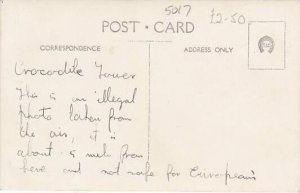 5017
£2-50
POST CARD
CORRESPONDENCE
ADDRESS ONLY
Crocodile Tower
This is an illegal
photo taken from
the air, it is
about 5 mile from
here and not safe for Europeans